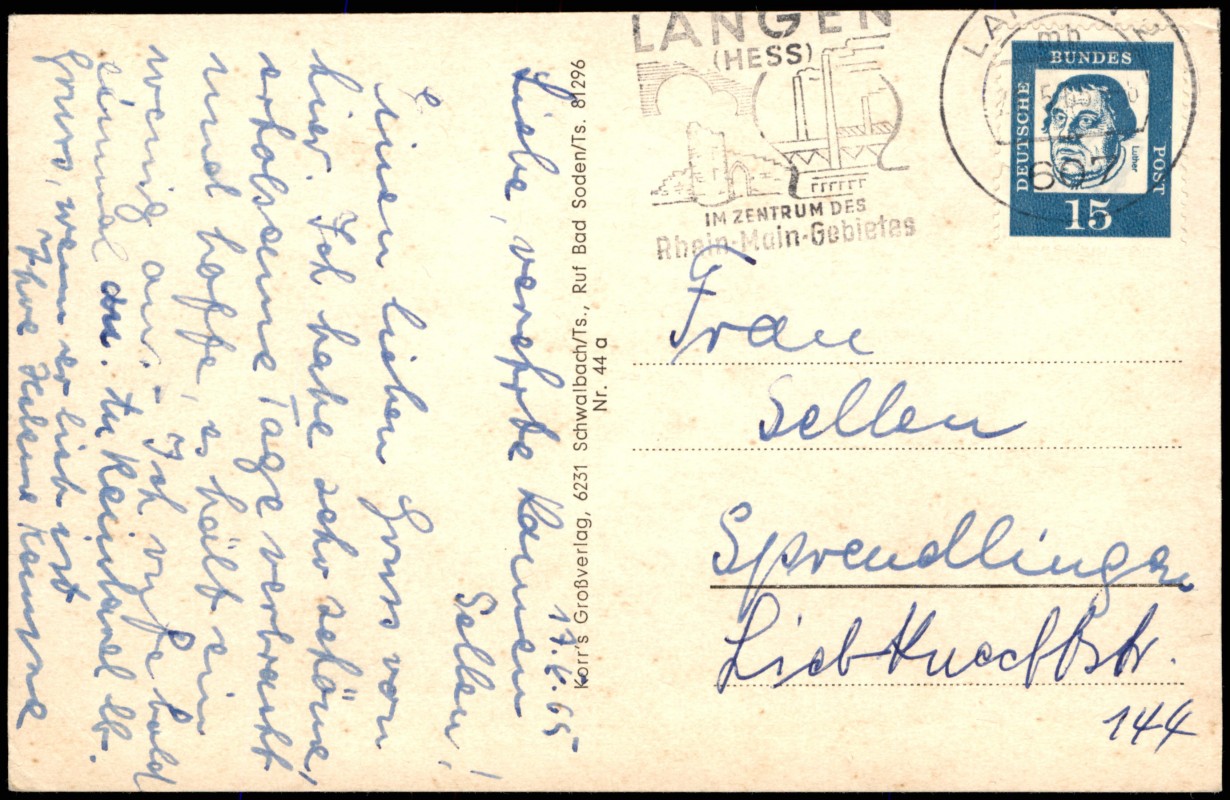 17.6.65
Liebe, verehrte Kannen
Sellen!
Einen lieben Gruss von
hier. Ich habe sehr schöne,
erholsame Tage verbracht
und hoffe, es hält ein
wenig an. Ich rufe bald
einmal an.
Gruss, wenn er lieb ist
Ihre Helene
Korr's Großverlag, 6231 Schwalbach/Ts., Ruf Bad Soden/Ts. 81296
Nr. 44 a
LANGEN
(HESS)
IM ZENTRUM DES
Rhein-Main-Gebietes
607
DEUTSCHE
BUNDES
POST
Luther
15
Frau
Sellen
Sprendlingen
Liebknechtstr.
144